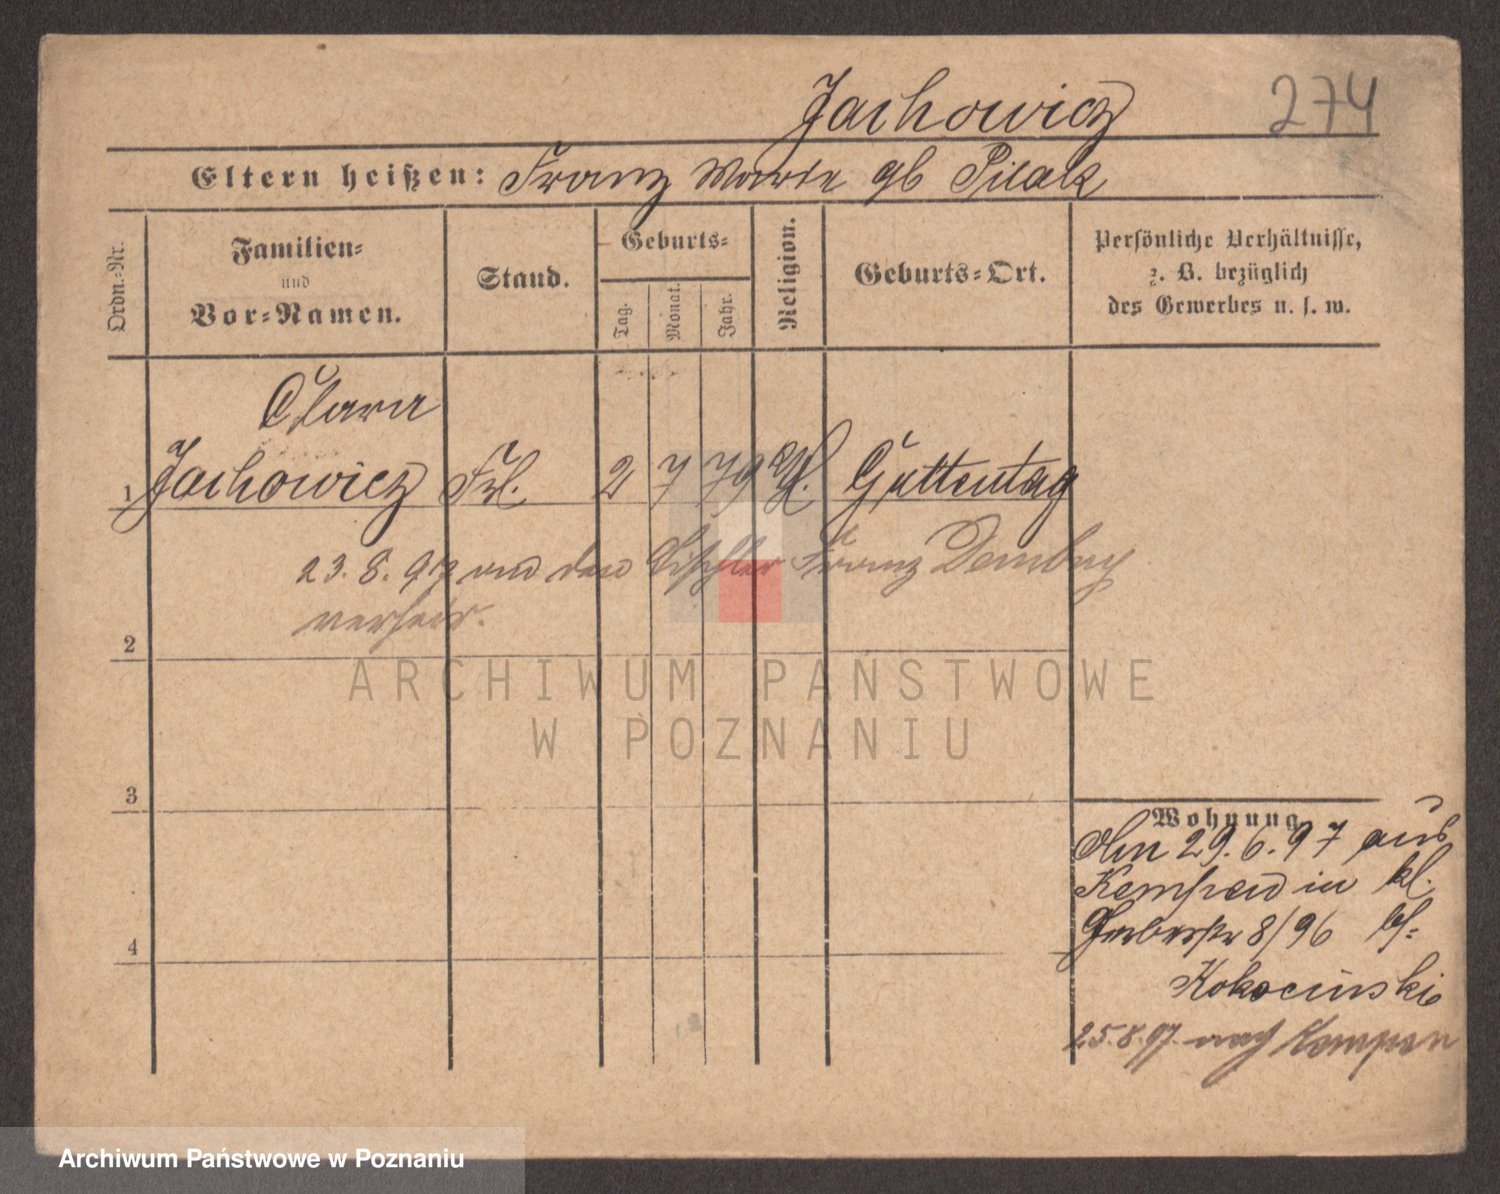 Jachowicz 274
Eltern heißen: Franz Marie gb Pilak
Ordn.-Nr.
Familien-
und
Vor-Namen.
Stand.
Geburts-
Tag.
Monat.
Jahr.
Religion.
Geburts-Ort.
Persönliche Verhältnisse,
z. B. bezüglich
des Gewerbes u. s. w.
Clara
1 Jachowicz Frl. 2 7 79 Guttentag
23.8.97 den Tischler Franz
verheir.
2
ARCHIWUM PAŃSTWOWE
W POZNANIU
3
4
Wohnung
Am 29.6.97 aus
Kempen in kl.
Gerberstr 8/96 bf:
Kokocinski
25.8.97. nach Kempen
Archiwum Państwowe w Poznaniu